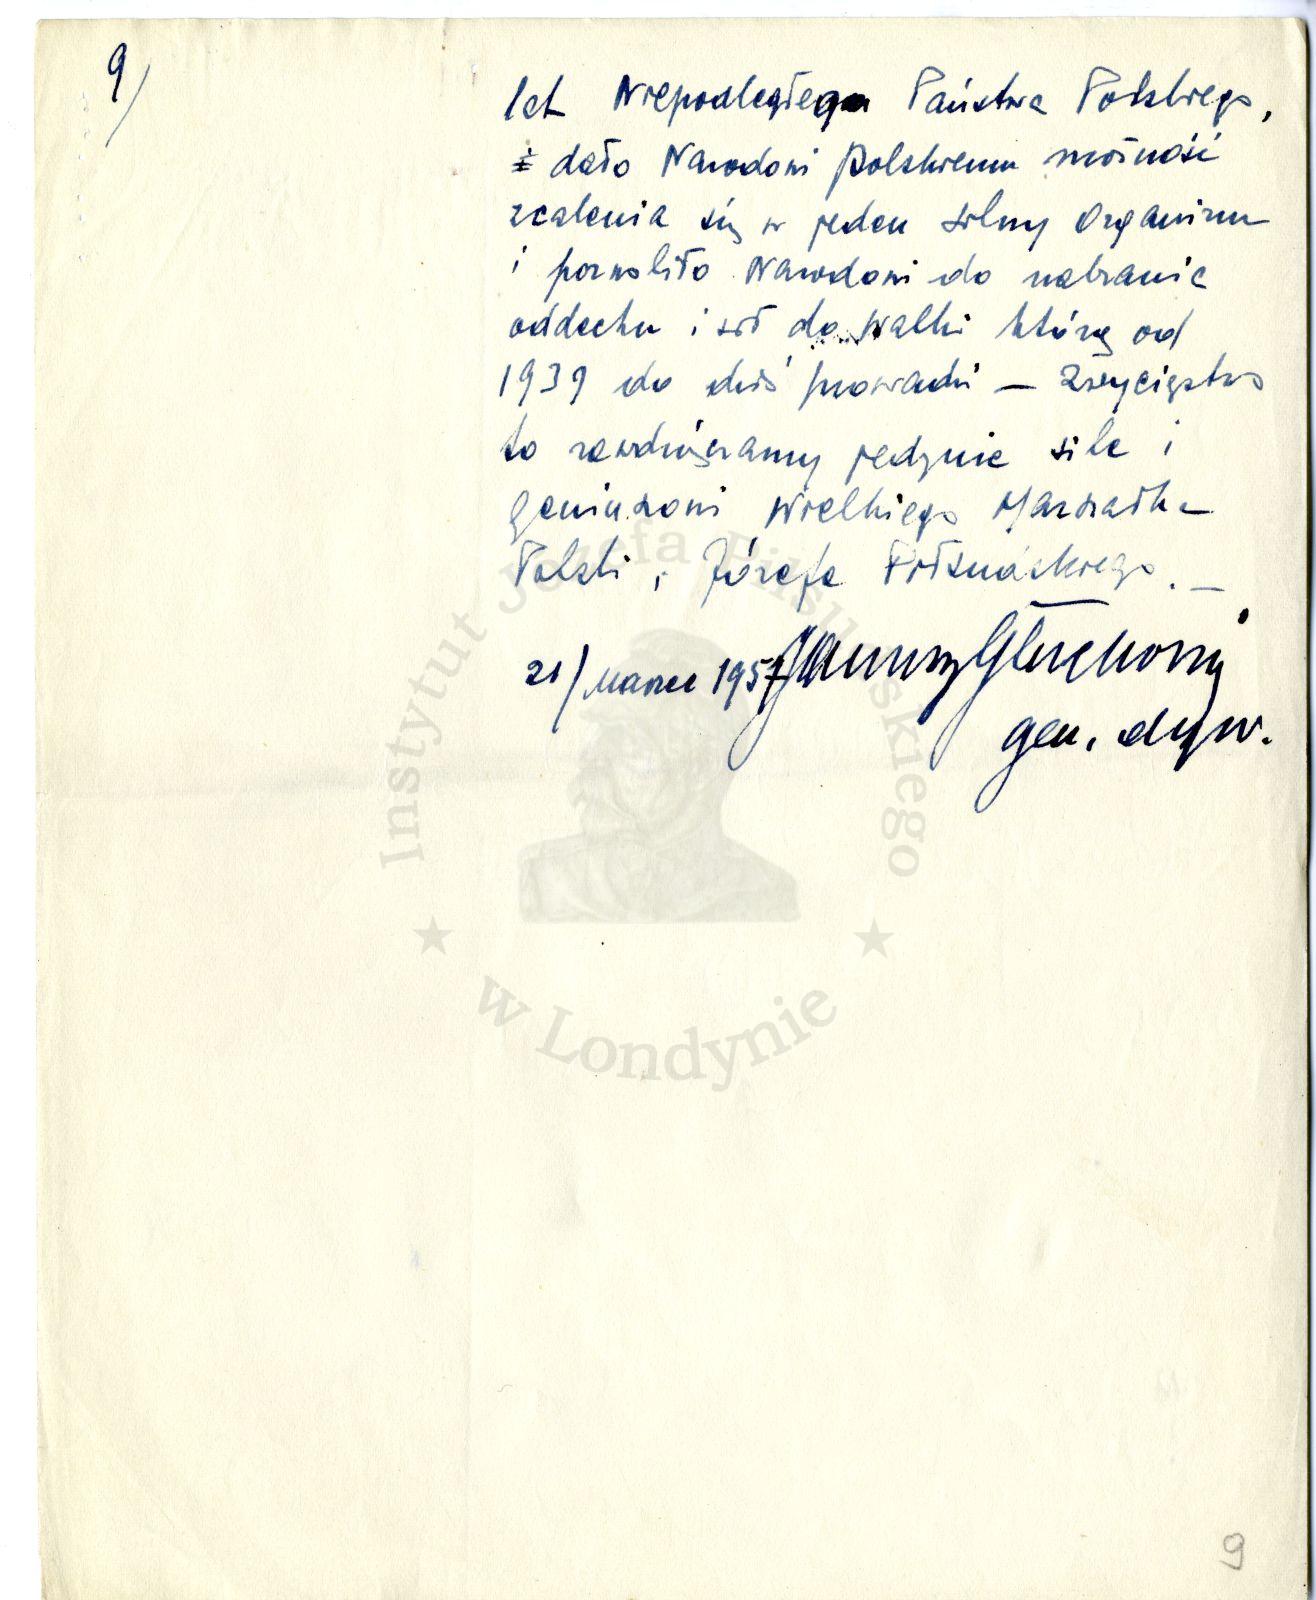 9/
lat Niepodległego Państwa Polskiego,
i dało Narodowi Polskiemu możność
zcalenia się w jeden silny Organizm
i pozwoliło Narodowi do nabrania
oddechu i sił do walki którą od
1939 do dziś prowadzi — Zwycięstwo
to zawdzięczamy jedynie sile i
geniuszowi Wielkiego Marszałka
Polski, Józefa Piłsudskiego. —
21/ Marzec 1957 Janusz Głuchowski
gen. dyw.
Instytut Józefa Piłsudskiego
w Londynie
9